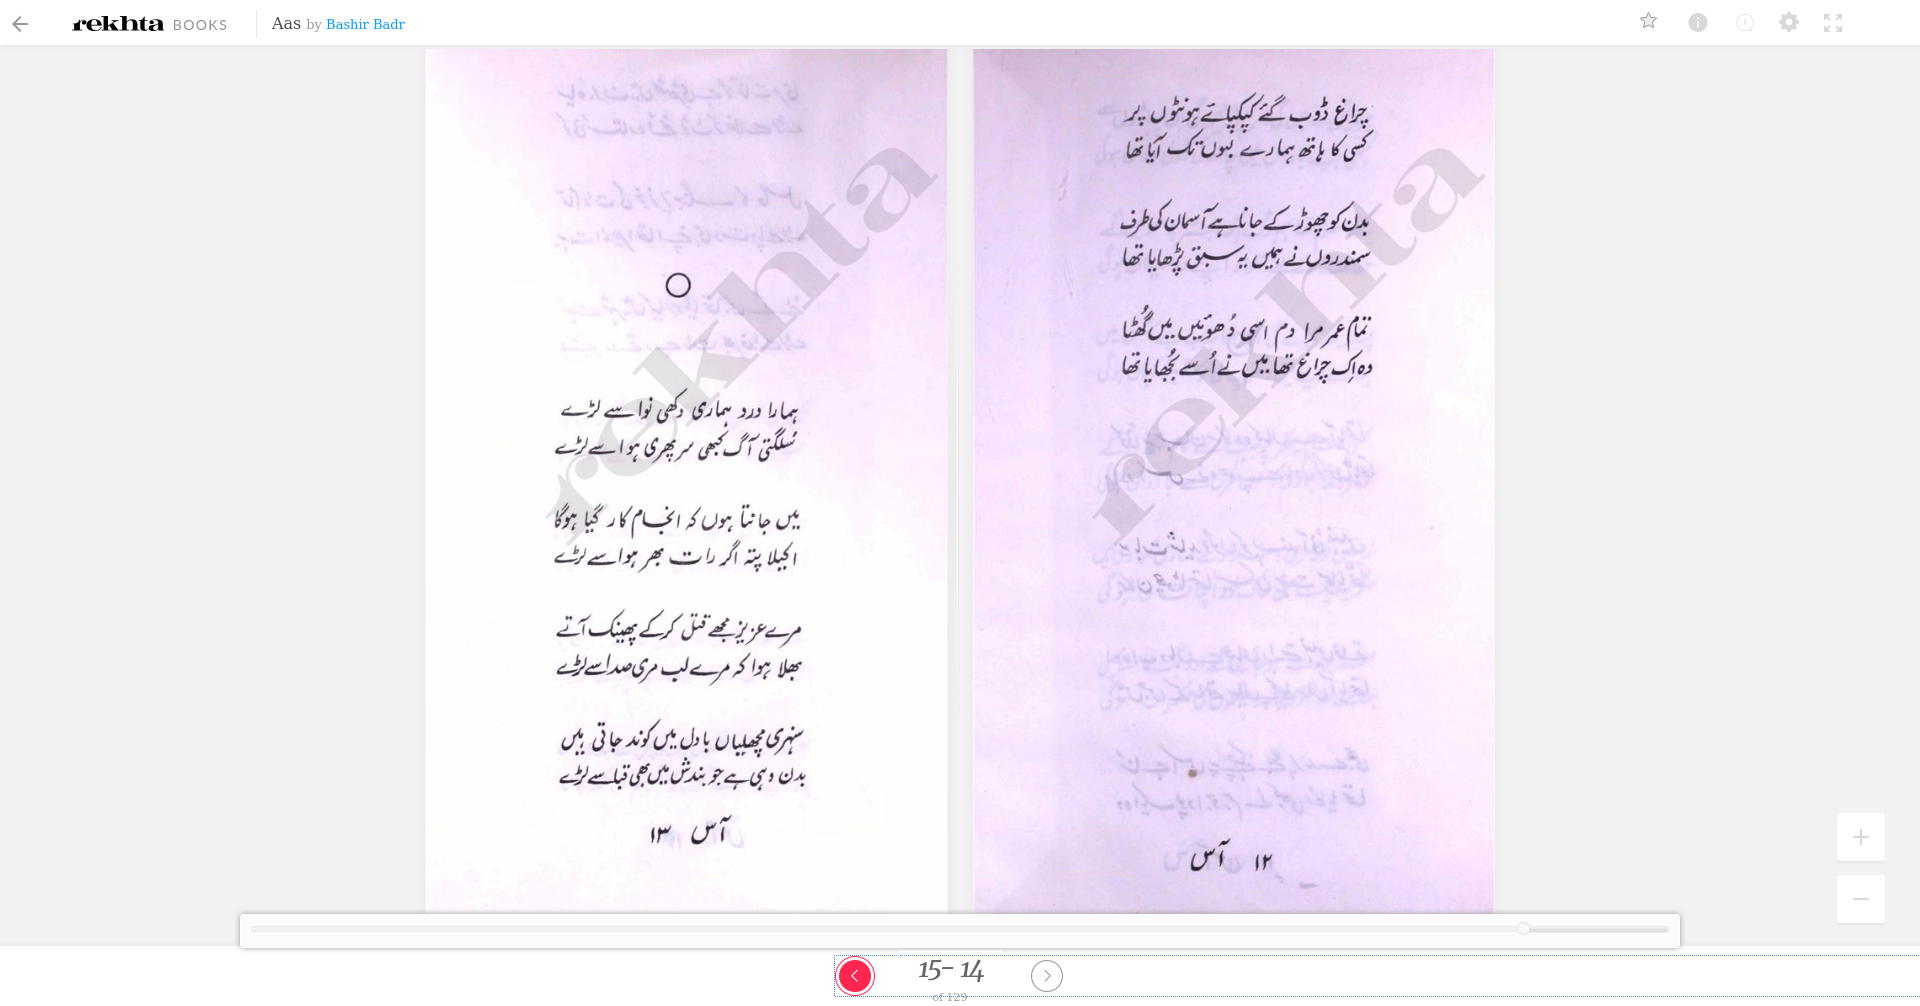 rekhta BOOKS Aas by Bashir Badr
چراغ ڈوب گئے کپکپائے ہونٹوں پر
کسی کا ہاتھ ہمارے لبوں تک آیا تھا
بدن کو چھوڑ کے جانا ہے آسمان کی طرف
سمندروں نے ہمیں یہ سبق پڑھایا تھا
تمام عمر مرا دم اسی دُھوئیں میں گُھٹا
وہ اِک چراغ تھا میں نے اُسے بُجھایا تھا
۱۲ آس
rekhta
ہمارا درد ہماری دکھی نوا سے لڑے
سُلگتی آگ کبھی سرپھری ہوا سے لڑے
میں جانتا ہوں کہ انجام کار گیا ہوگا
اکیلا پتہ اگر رات بھر ہوا سے لڑے
مرے عزیز مجھے قتل کر کے پھینک آتے
بھلا ہوا کہ مرے لب مری صدا سے لڑے
سنہری مچھلیاں بادل میں کوند جاتی ہیں
بدن وہی ہے جو بندش میں بھی قبا سے لڑے
آس ۱۳
rekhta
15- 14
of 129